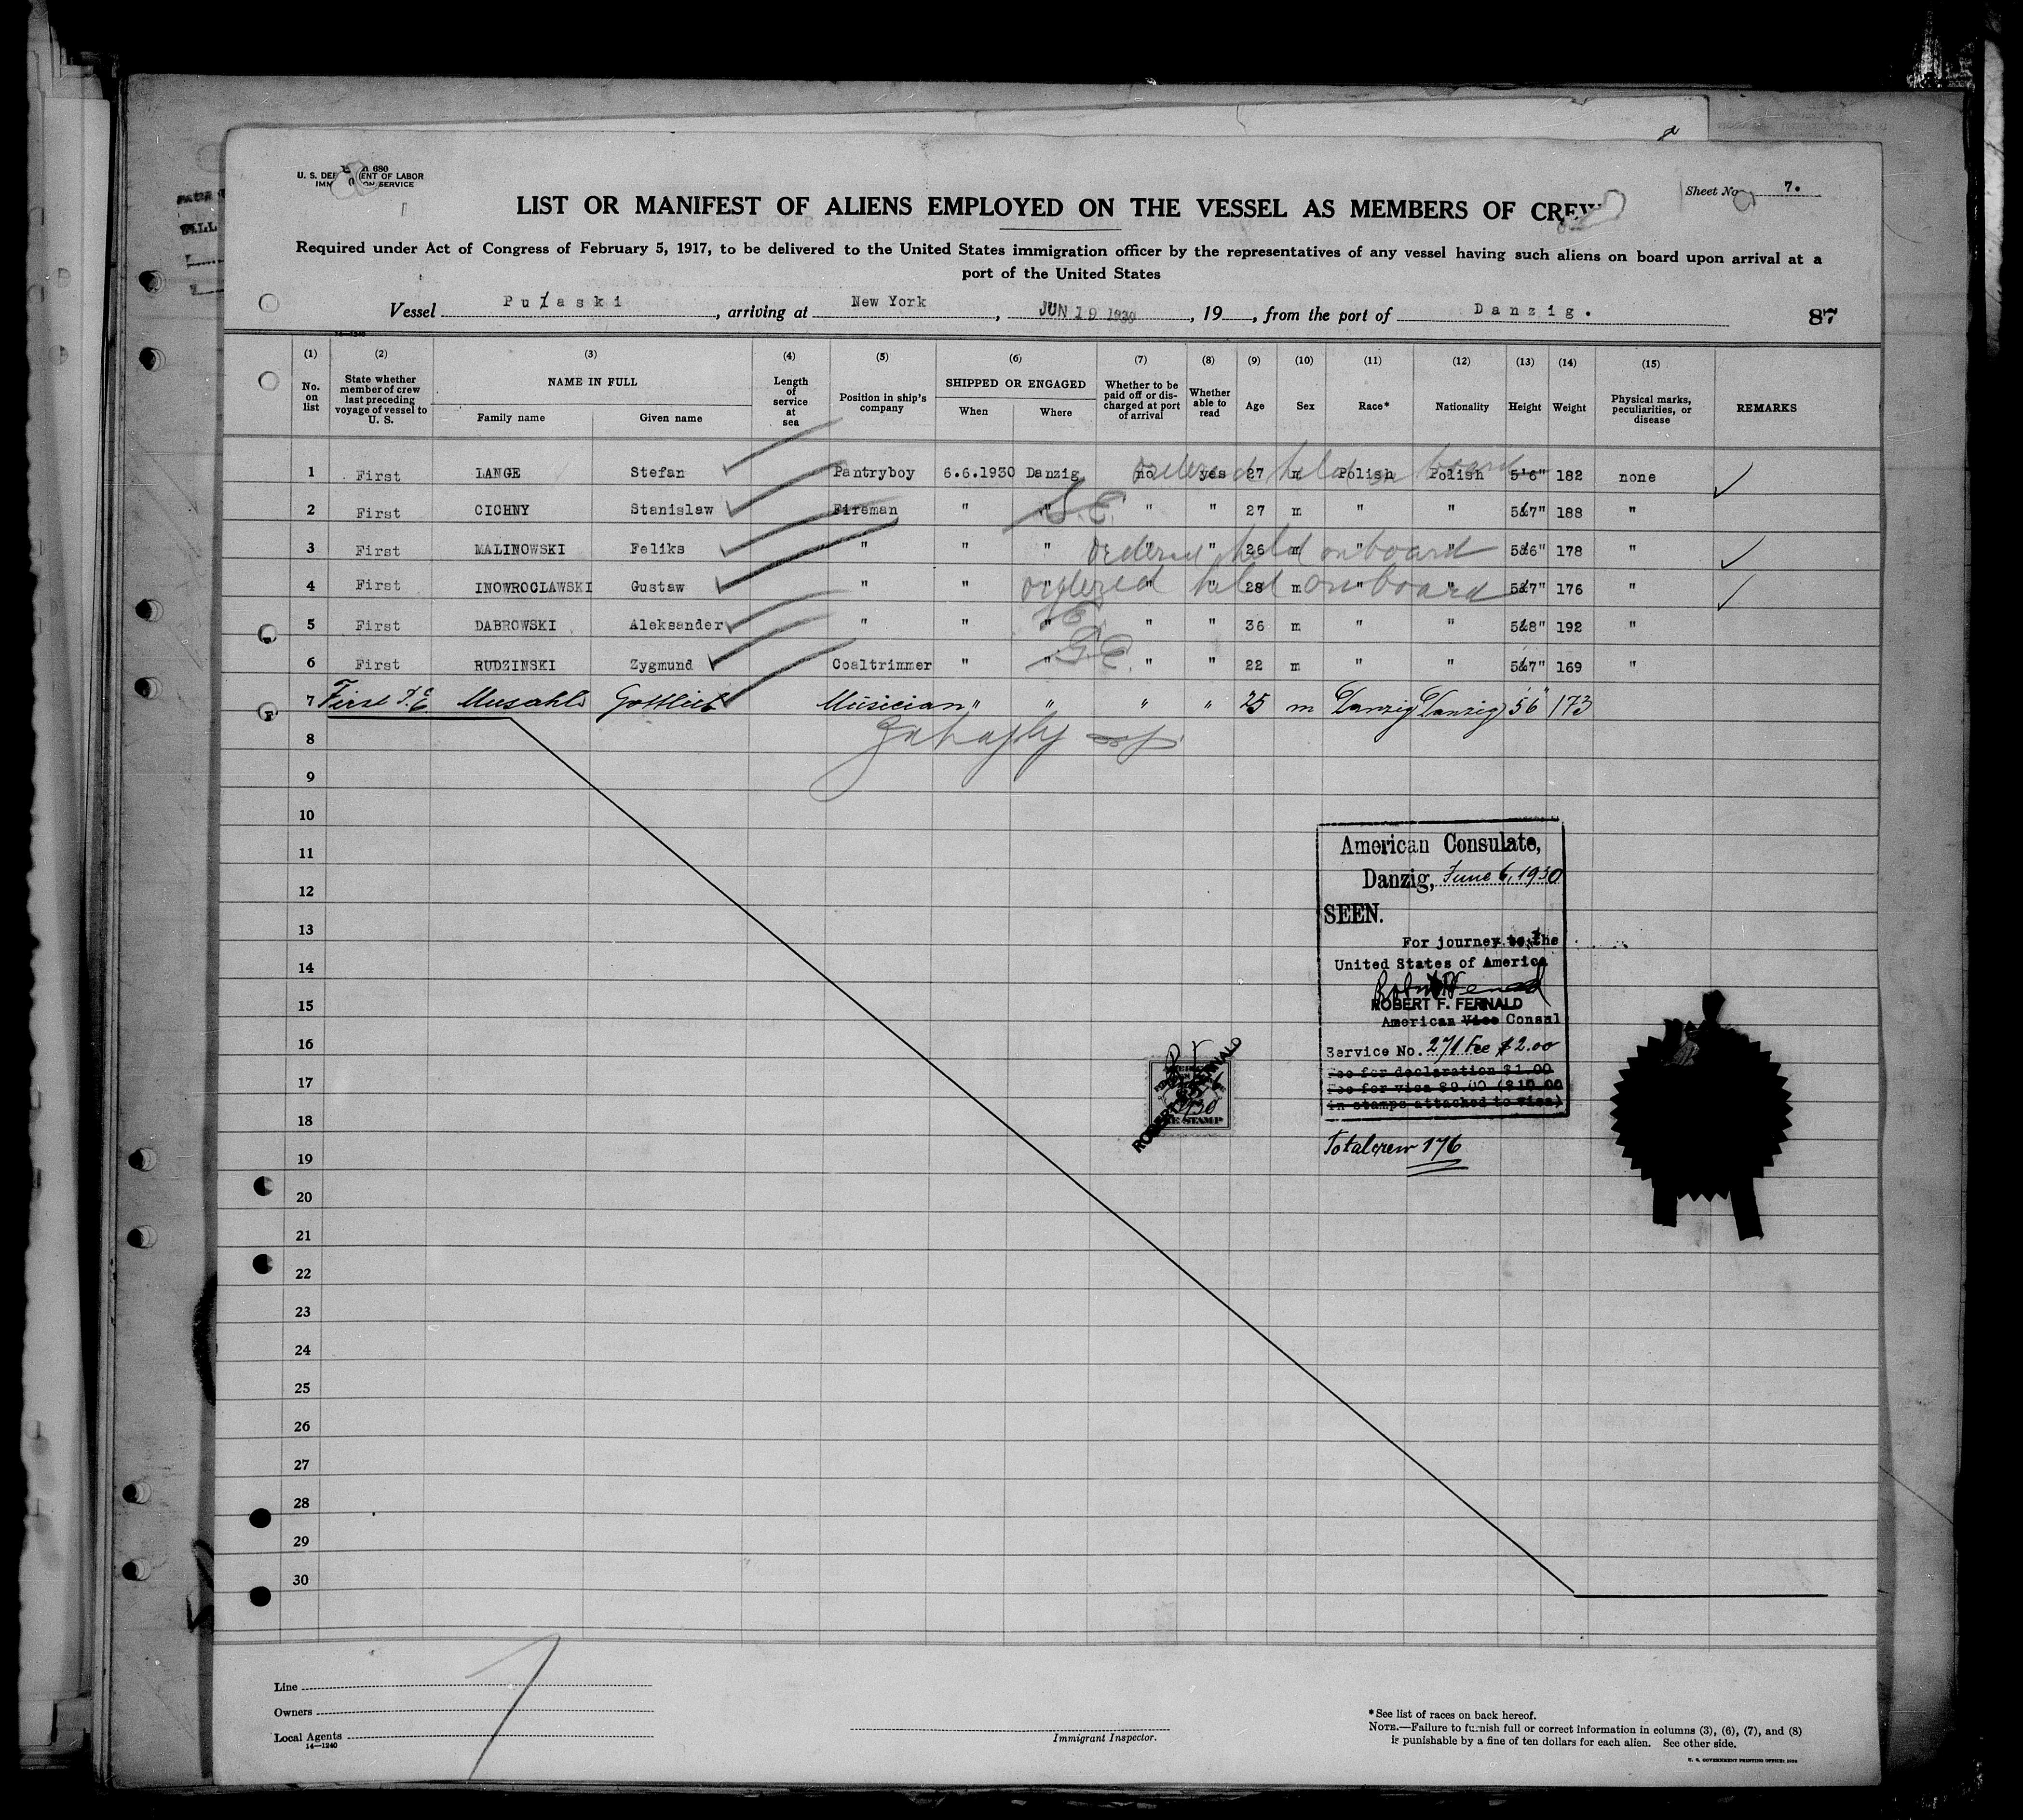 680
U. S. DEP ENT OF LABOR
IMM ON SERVICE
Sheet No. 7.
LIST OR MANIFEST OF ALIENS EMPLOYED ON THE VESSEL AS MEMBERS OF CREW
Required under Act of Congress of February 5, 1917, to be delivered to the United States immigration officer by the representatives of any vessel having such aliens on board upon arrival at a
port of the United States
Vessel Pułaski , arriving at New York , JUN 19 1930 , 19 , from the port of Danzig. 87
14-1240
(1) (2) (3) (4) (5) (6) (7) (8) (9) (10) (11) (12) (13) (14) (15)
No. on list State whether member of crew last preceding voyage of vessel to U. S. NAME IN FULL Family name Given name Length of service at sea Position in ship's company SHIPPED OR ENGAGED When Where Whether to be paid off or discharged at port of arrival Whether able to read Age Sex Race* Nationality Height Weight Physical marks, peculiarities, or disease REMARKS
1 First LANGE Stefan Pantryboy 6.6.1930 Danzig no yes 27 m Polish Polish 5'6" 182 none
ordered held on board
2 First CICHNY Stanislaw Fireman " " " " 27 m " " 5&7" 188 "
3 First MALINOWSKI Feliks " " " " " 26 m " " 5&6" 178 "
ordered held on board
4 First INOWROCLAWSKI Gustaw " " " " " 28 m " " 5&7" 176 "
ordered held on board
5 First DABROWSKI Aleksander " " " " " 36 m " " 5&8" 192 "
6 First RUDZINSKI Zygmund Coaltrimmer " " " " 22 m " " 5&7" 169 "
7 First Musahl Gottlieb Musician " " " " 25 m Danzig Danzig 5'6" 173
8
9
10
11
12
13
14
15
16
17
18
19
20
21
22
23
24
25
26
27
28
29
30
American Consulate,
Danzig, June 6, 1930
SEEN.
For journey to the
United States of America
ROBERT F. FERNALD
American Vice Consul
Service No. 271 Fee $2.00
Fee for declaration $1.00
Fee for visa $9.00 ($10.00
in stamps attached to visa)
Total crew 176
Line
Owners
Local Agents
14-1240
Immigrant Inspector.
*See list of races on back hereof.
NOTE.—Failure to furnish full or correct information in columns (3), (6), (7), and (8)
is punishable by a fine of ten dollars for each alien. See other side.